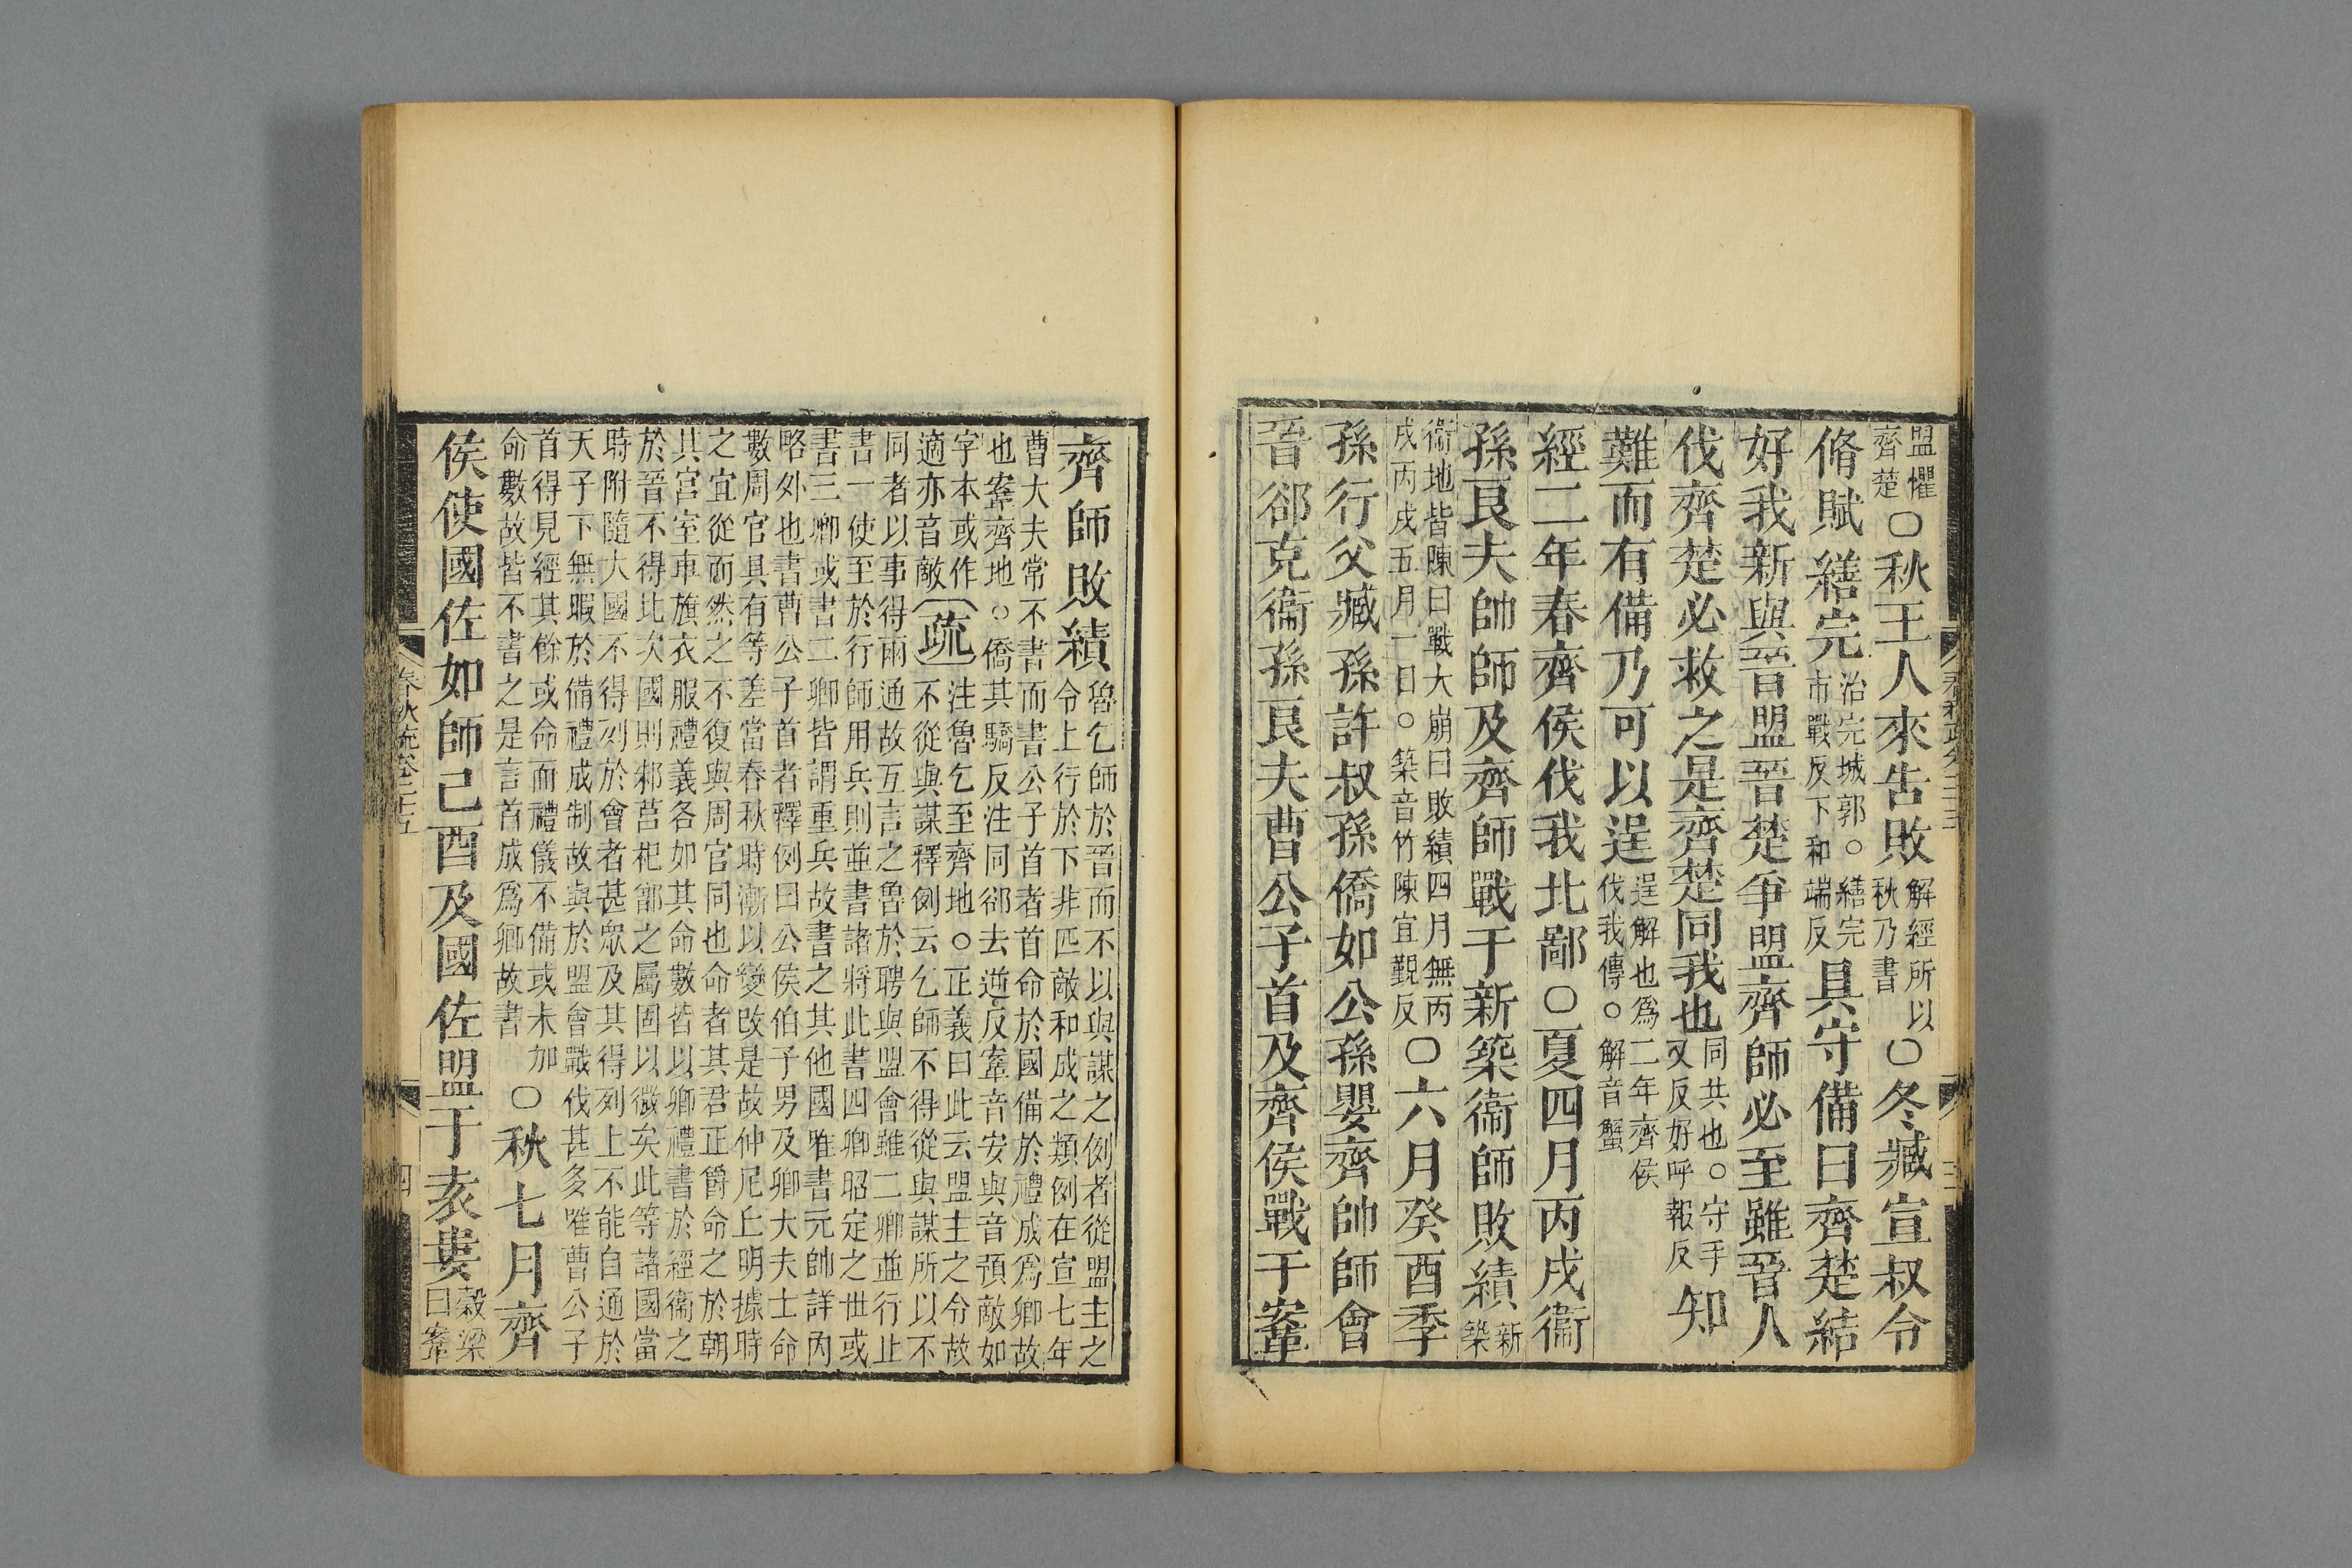 盟懼
齊楚
○秋王人來告敗
解經所以
秋乃書
○冬臧宣叔令
脩賦繕完
治完城郭○繕完
市戰反下和端反
具守備曰齊楚結
好我新與晉盟晉楚爭盟齊師必至雖晉人
伐齊楚必救之是齊楚同我也
同共也○守手
又反好呼報反
知
難而有備乃可以逞
逞解也爲二年齊侯
伐我傳○解音蟹
經二年春齊侯伐我北鄙○夏四月丙戌衞
孫良夫帥師及齊師戰于新築衞師敗績
新
築
衞地皆陳曰戰大崩曰敗績四月無丙
戌丙戌五月一日○築音竹陳直覲反
○六月癸酉季
孫行父臧孫許叔孫僑如公孫嬰齊帥師會
晉郤克衞孫良夫曹公子首及齊侯戰于鞌
齊師敗績
魯乞師於晉而不以與謀之例者從盟主之
令上行於下非匹敵和成之類例在宣七年
曹大夫常不書而書公子首者首命於國備於禮成爲卿故
也鞌齊地○僑其驕反注同郤去逆反鞌音安與音預敵如
字本或作
適亦音敵
疏
注魯乞至齊地○正義曰此云盟主之令故
不從與謀釋例云乞師不得從與謀所以不
同者以事得兩通故互言之魯於聘與盟會雖二卿並行止
書一使至於行師用兵則並書諸將此書四卿昭定之世或
書三卿或書二卿皆謂重兵故書之其他國唯書元帥詳內
略外也書曹公子首者釋例曰公侯伯子男及卿大夫士命
數周官具有等差當春秋時漸以變改是故仲尼丘明據時
之宜從而然之不復與周官同也命者其君正爵命之於朝
其宮室車旗衣服禮義各如其命數皆以卿禮書於經衞之
於晉不得比次國則邾莒杞鄫之屬固以微矣此等諸國當
時附隨大國不得列於會者甚眾及其得列上不能自通於
天子下無暇於備禮成制故與於盟會戰伐甚多唯曹公子
首得見經其餘或命而禮儀不備或未加
命數故皆不書之是言首成爲卿故書
○秋七月齊
侯使國佐如師己酉及國佐盟于袁婁
穀梁
曰鞌
春秋疏卷二十五
四